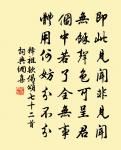 即此見聞非見聞
無餘聲色可呈君
個中若了全無事
體用何妨分不分
釋祖欽偈頌七十二首
詞典網